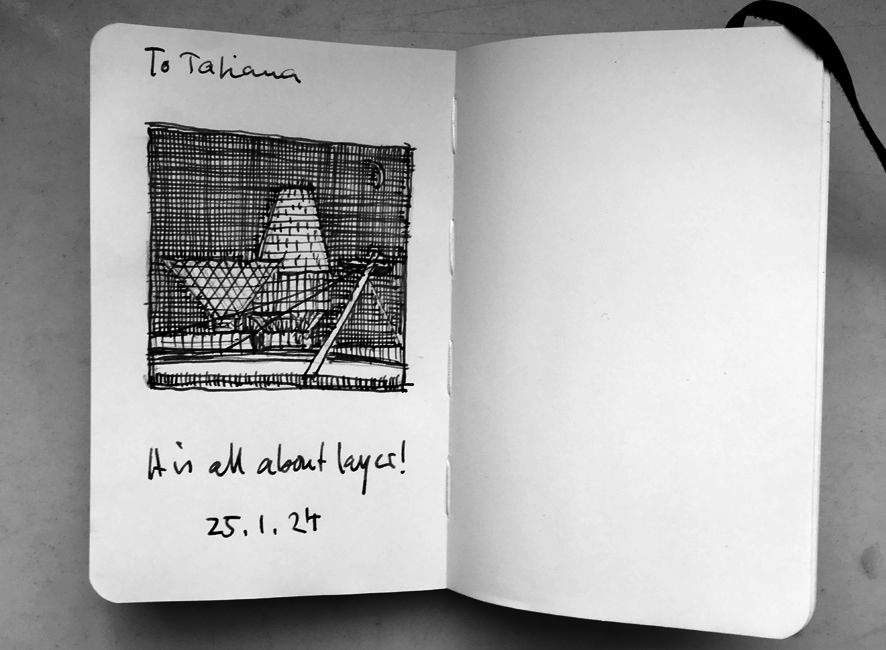 To Tatiana
It is all about layers!
25.1.24